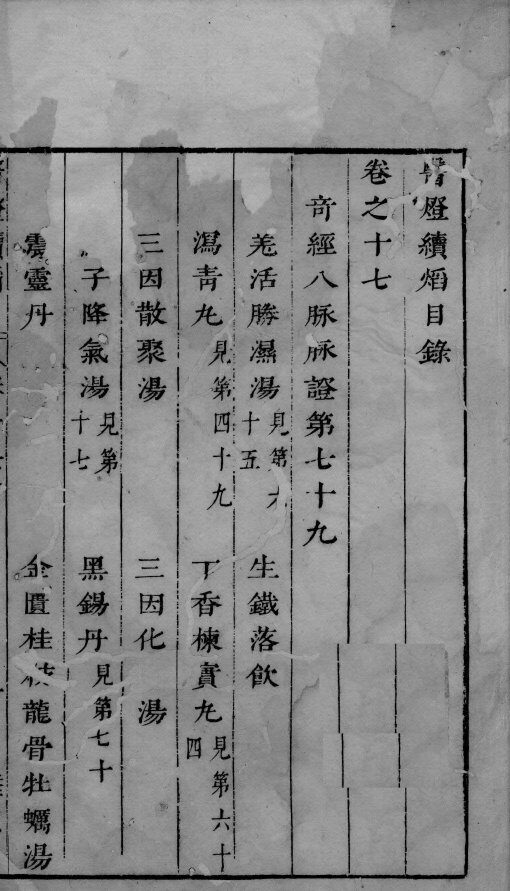 膏燈續焰目錄
卷之十七
奇經八脉脉證第七十九
羌活勝濕湯見第六十五 生鐵落飲
瀉青丸見第四十九 丁香楝實丸見第六十四
三因散聚湯 三因化 湯
子降氣湯見第十七 黑錫丹見第七十
震靈丹 金匱桂枝龍骨牡蠣湯